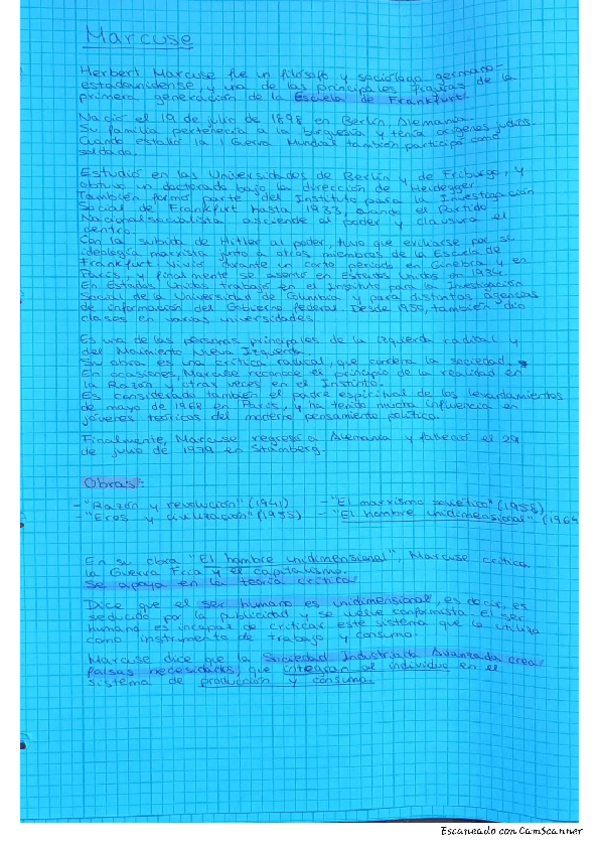 Marcuse
Herbert Marcuse fue un filósofo y sociólogo germano-
estadounidense, y una de las principales figuras de la
primera generación de la Escuela de Frankfurt.
Nació el 19 de julio de 1898 en Berlín, Alemania.
Su familia pertenecía a la burguesía y tenía orígenes judíos.
Cuando estalló la I Guerra Mundial también participó como
soldado.
Estudió en las Universidades de Berlín y de Friburgo, y
obtuvo un doctorado bajo la dirección de Heidegger.
También formó parte del Instituto para la Investigación
Social de Frankfurt hasta 1933, cuando el Partido
Nacionalsocialista asciende al poder y clausura el
centro.
Con la subida de Hitler al poder, tuvo que exiliarse por su
ideología marxista junto a otros miembros de la Escuela de
Frankfurt. Vivió durante un corto periodo en Ginebra y en
París, y finalmente se asentó en Estados Unidos en 1934.
En Estados Unidos trabajó en el Instituto para la Investigación
Social de la Universidad de Columbia y para distintas agencias
de información del Gobierno federal. Desde 1950, también dio
clases en varias universidades.
Es una de las personas principales de la izquierda radical y
del Movimiento Nueva Izquierda.
Su obra es una crítica radical, que condena la sociedad.
En ocasiones, Marcuse reconoce el principio de la realidad en
la Razón y otras veces en el Instinto.
Es considerado también el padre espiritual de los levantamientos
de mayo de 1968 en París, y ha tenido mucha influencia en
jóvenes teóricos del moderno pensamiento político.
Finalmente, Marcuse regresó a Alemania y falleció el 29
de julio de 1979 en Starnberg.
Obras:
- "Razón y revolución" (1941) - "El marxismo soviético" (1958)
- "Eros y civilización" (1955) - "El hombre unidimensional" (1964
En su obra "El hombre unidimensional", Marcuse critica
la Guerra Fría y el capitalismo.
Se apoya en la teoría crítica.
Dice que el ser humano es unidimensional, es decir, es
seducido por la publicidad y se vuelve conformista. El ser
humano es incapaz de criticar este sistema que lo utiliza
como instrumento de trabajo y consumo.
Marcuse dice que la Sociedad Industrial Avanzada crea
falsas necesidades, que integran al individuo en el
sistema de producción y consumo.
Escaneado con CamScanner